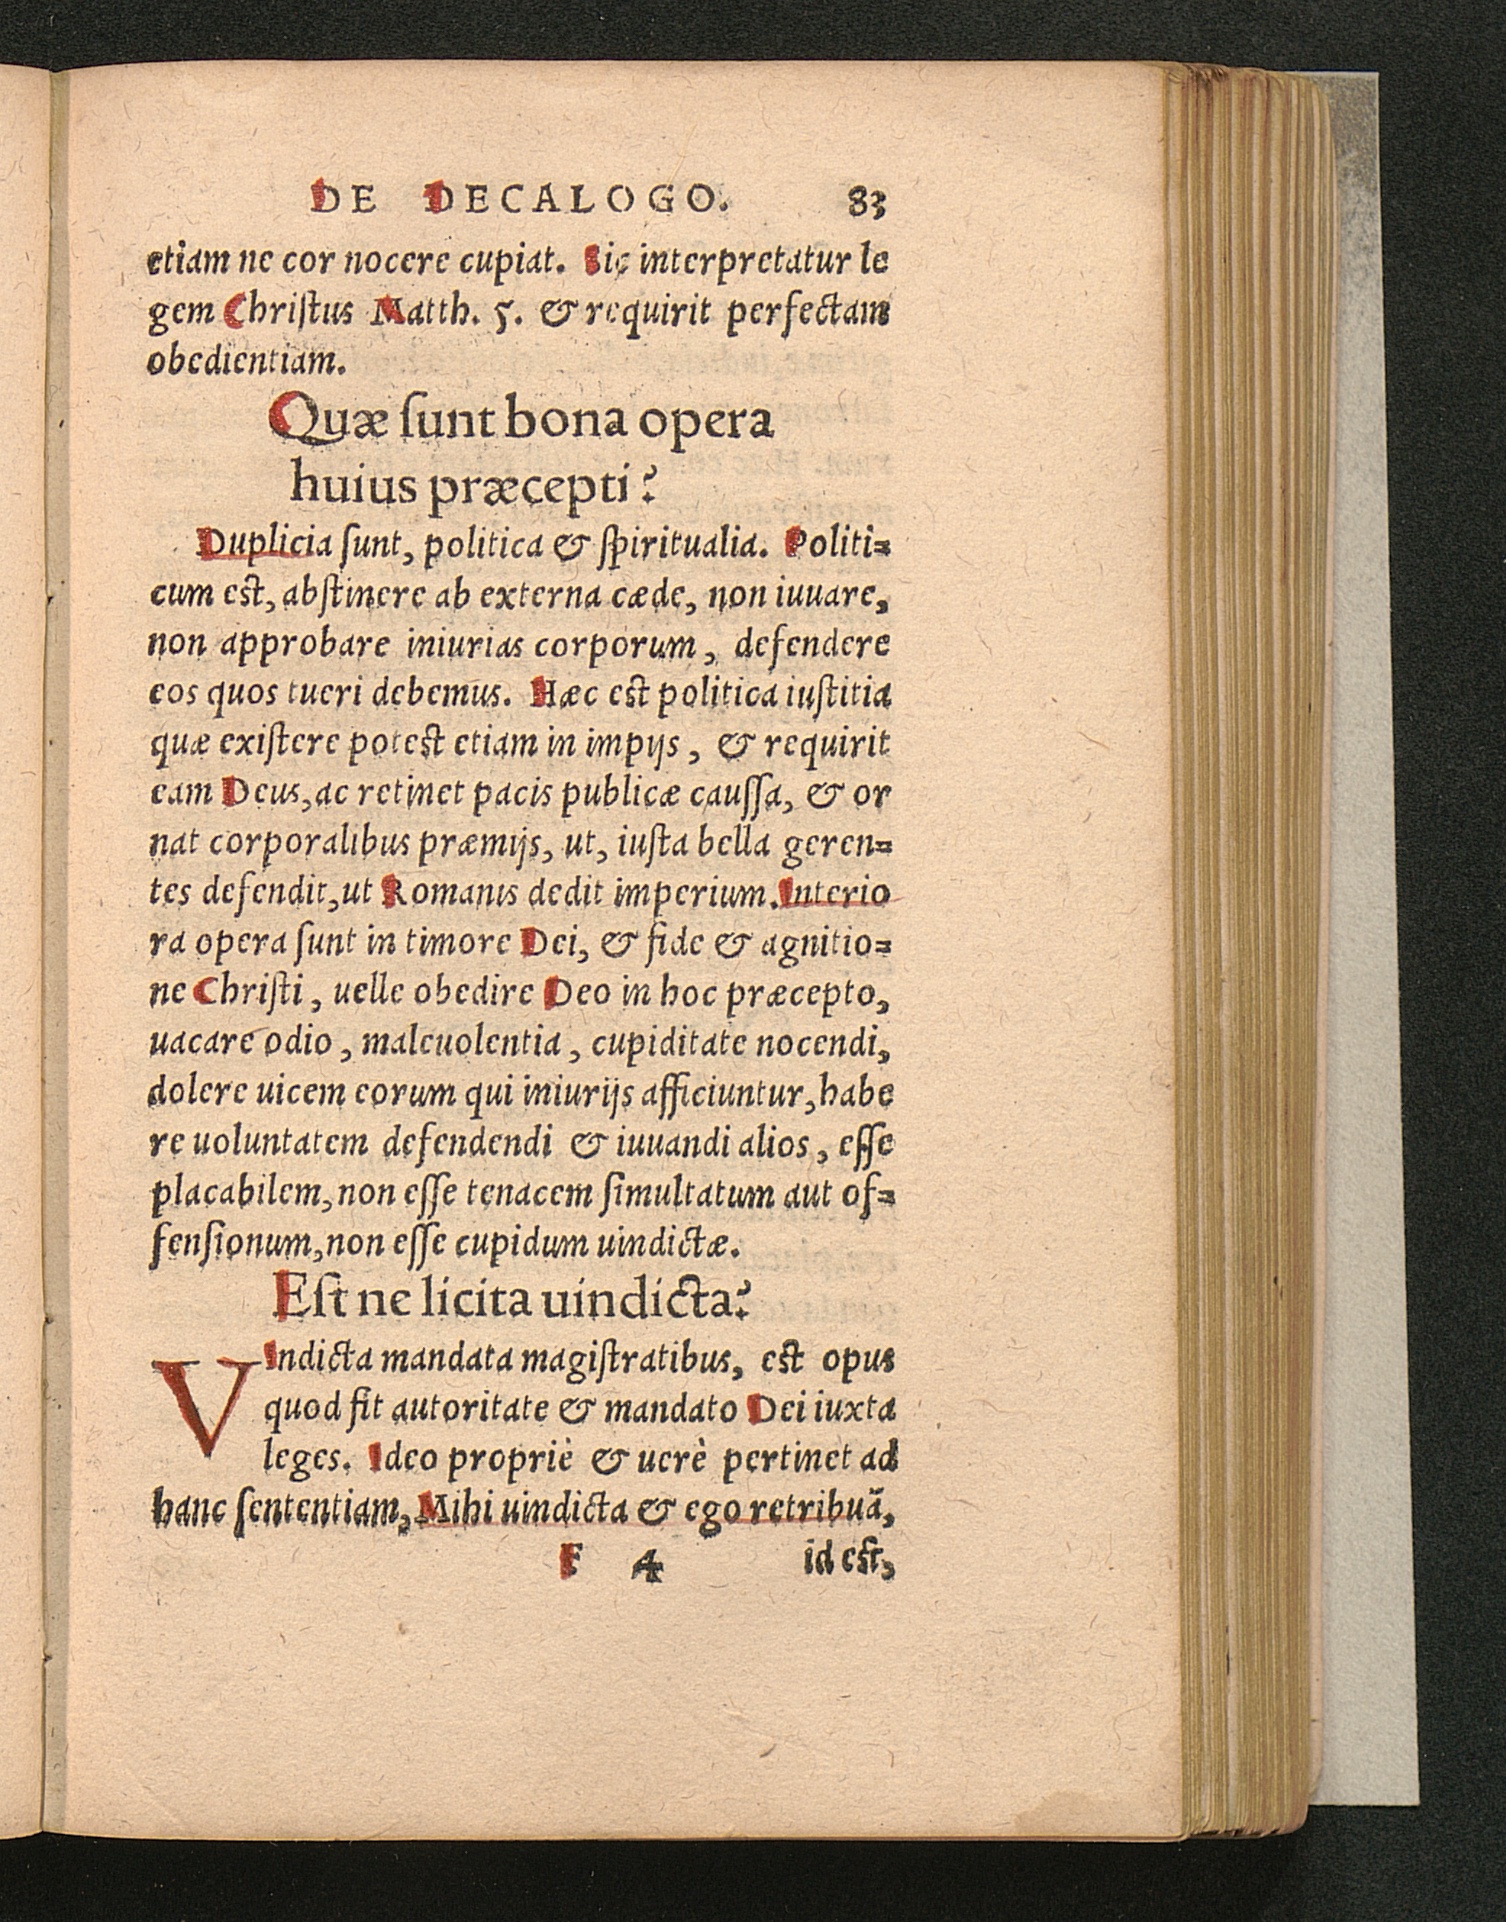 DE DECALOGO. 83
etiam ne cor nocere cupiat. Sic interpretatur le
gem Chriſtus Matth. 5. & requirit perfectam
obedientiam.
Quæ ſunt bona opera
huius præcepti?
Duplicia ſunt, politica & ſpiritualia. Politi=
cum eſt, abſtinere ab externa cæde, non iuuare,
non approbare iniurias corporum, defendere
eos quos tueri debemus. Hæc eſt politica iuſtitia
quæ exiſtere poteſt etiam in impijs, & requirit
eam Deus, ac retinet pacis publicæ cauſſa, & or
nat corporalibus præmijs, ut, iuſta bella geren=
tes defendit, ut Romanis dedit imperium. Interio
ra opera ſunt in timore Dei, & fide & agnitio=
ne Chriſti, uelle obedire Deo in hoc præcepto,
uacare odio, maleuolentia, cupiditate nocendi,
dolere uicem eorum qui iniurijs afficiuntur, habe
re uoluntatem defendendi & iuuandi alios, eſſe
placabilem, non eſſe tenacem ſimultatum aut of=
fenſionum, non eſſe cupidum uindictæ.
Eſt ne licita uindicta?
VIndicta mandata magiſtratibus, eſt opus
quod fit autoritate & mandato Dei iuxta
leges. Ideo propriè & uerè pertinet ad
hanc ſententiam, Mihi uindicta & ego retribuã,
F 4 id eſt,